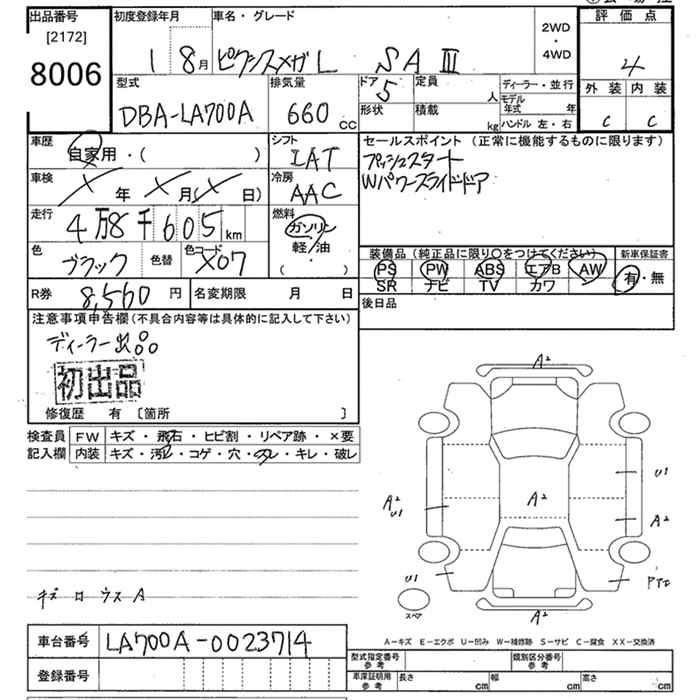 出品番号 初度登録年月 車名・グレード 2WD・4WD 評価点
[2172]
8006 1 8月 ピクシスメガL SAⅢ 4
型式 排気量 ドア 5 定員 人 ディーラー・並行 外装 内装
DBA-LA700A 660cc 形状 積載 kg モデル年式 年 C C
ハンドル 左・右
車歴 自家用・( ) シフト IAT セールスポイント (正常に機能するものに限ります)
プッシュスタート
Wパワースライドドア
車検 年 月( 日) 冷房 AAC
走行 4万8千605km 燃料 ガソリン
軽油・( )
色 ブラック 色替 色コード X07
装備品(純正品に限り○をつけてください) 新車保証書
PS PW ABS エアB AW 有・無
SR ナビ TV カワ
R券 8,560円 名変期限 月 日 後日品
注意事項申告欄(不具合内容等は具体的に記入して下さい)
初出品
修復歴 有 [箇所 ]
検査員 FW キズ・飛石・ヒビ割・リペア跡・×要
記入欄 内装 キズ・汚・コゲ・穴・・キレ・破レ
A2
U1
A2
U1
A2
A2
U1
スペア
A2
A−キズ E−エクボ U−凹み W−補修跡 S−サビ C−腐食 XX−交換済
車台番号 LA700A-0023714
型式指定番号 参考 類別区分番号 参考
登録番号
車庫証明用 参考 長さ cm 幅 cm 高さ cm